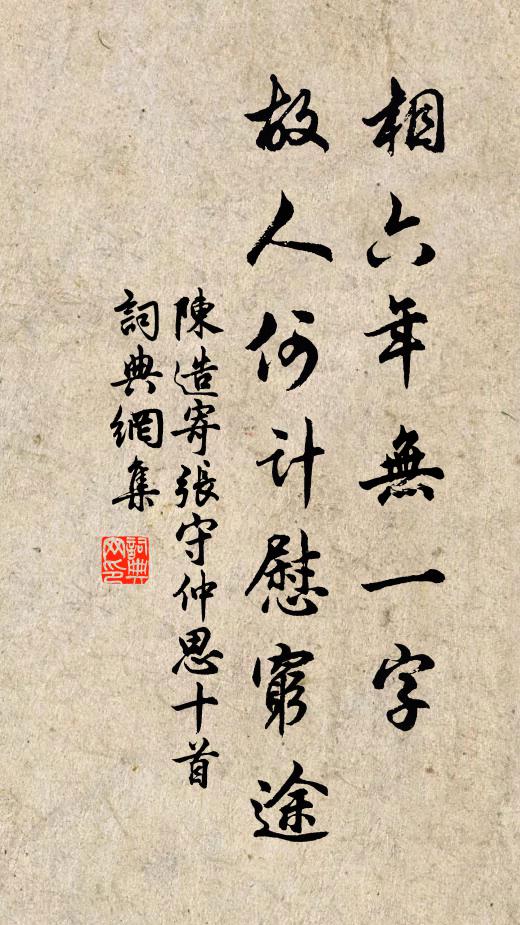 相六年無一字
故人何計慰窮途
陳造寄張守仲思十首
詞典網集
詞典網印